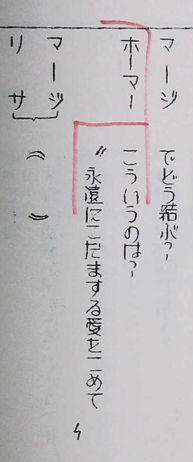 マージ　でどう結ぶ？
ホーマー　こういうのは？
〃永遠にこだまする愛をこめて
マージ
リサ　（　）